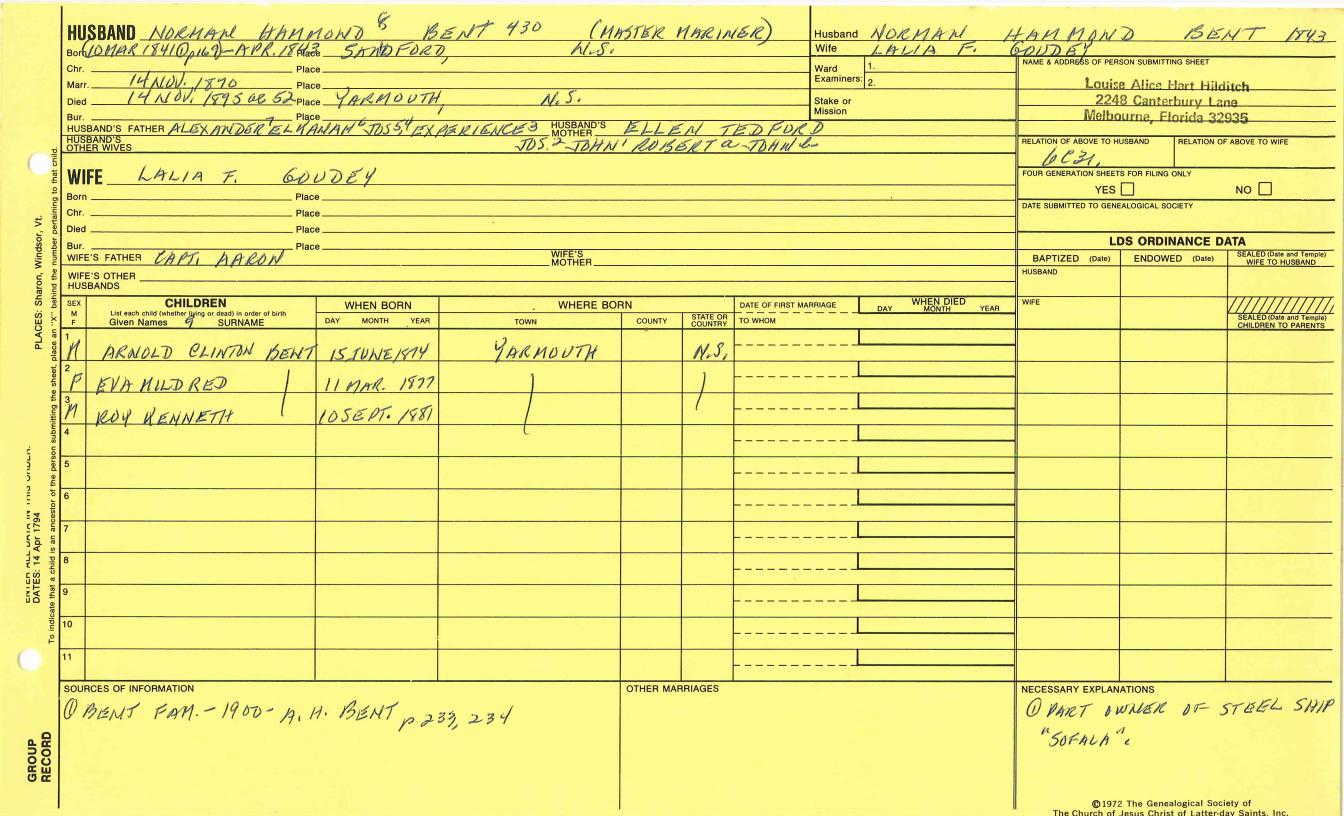 HUSBAND NORMAN HAMMOND 8 BENT 430 (MASTER MARINER)
Born 10 MAR 1841 ① p167 – APR. 1843 Place SANDFORD, N.S.
Chr. Place
Marr. 14 NOV. 1870 Place
Died 14 NOV. 1895 aE 52 Place YARMOUTH, N.S.
Bur. Place
HUSBAND'S FATHER ALEXANDER 7 ELKANAH 6 JOS 5,4 EXPERIENCE 3 HUSBAND'S MOTHER ELLEN TEDFORD
HUSBAND'S OTHER WIVES JOS. 2 JOHN 1 ROBERT a JOHN b
WIFE LALIA F. GOUDEY
Born Place
Chr. Place
Died Place
Bur. Place
WIFE'S FATHER CAPT. AARON WIFE'S MOTHER
WIFE'S OTHER HUSBANDS
Husband NORMAN HAMMOND BENT 1843
Wife LALIA F. GOUDEY
Ward Examiners: 1.
2.
Stake or Mission
NAME & ADDRESS OF PERSON SUBMITTING SHEET
Louise Alice Hart Hilditch
2248 Canterbury Lane
Melbourne, Florida 32935
RELATION OF ABOVE TO HUSBAND RELATION OF ABOVE TO WIFE
6C3r.
FOUR GENERATION SHEETS FOR FILING ONLY
YES NO
DATE SUBMITTED TO GENEALOGICAL SOCIETY
LDS ORDINANCE DATA
BAPTIZED (Date) ENDOWED (Date) SEALED (Date and Temple) WIFE TO HUSBAND
HUSBAND
WIFE
SEALED (Date and Temple) CHILDREN TO PARENTS
SEX M F
CHILDREN
List each child (whether living or dead) in order of birth
Given Names 9 SURNAME
WHEN BORN
DAY MONTH YEAR
WHERE BORN
TOWN COUNTY STATE OR COUNTRY
DATE OF FIRST MARRIAGE
TO WHOM
WHEN DIED
DAY MONTH YEAR
1 M ARNOLD CLINTON BENT 15 JUNE 1874 YARMOUTH N.S.
2 F EVA MILDRED 11 MAR. 1877
3 M ROY KENNETH 10 SEPT. 1881
4
5
6
7
8
9
10
11
SOURCES OF INFORMATION
① BENT FAM. – 1900 – A. H. BENT p. 233, 234
OTHER MARRIAGES
NECESSARY EXPLANATIONS
① PART OWNER OF STEEL SHIP
"SOFALA".
©1972 The Genealogical Society of
The Church of Jesus Christ of Latter-day Saints, Inc.
GROUP RECORD
ENTER ALL DATA IN THIS ORDER:
DATES: 14 Apr 1794
PLACES: Sharon, Windsor, Vt.
To indicate that a child is an ancestor of the person submitting the sheet, place an "X" behind the number pertaining to that child.